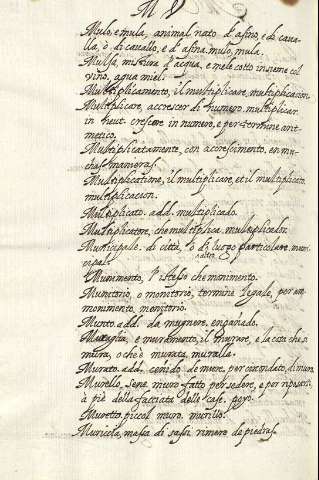 M V
Mulo, e mula, animal nato d'asino, e di caval-
la, ò di cavallo, e d'asina. mulo, mula.
Mulsa, mistura d'acqua, e mele cotto insieme col
vino, agua miel.
Multiplicamento, il multiplicare, multiplicacion
Multiplicare, accrescer di numero, multiplicar.
in neut. crescere in numero, e per termine arit-
metico.
Multiplicatamente, con accrescimento, en mu-
chas maneras.
Multiplicatione, il multiplicare, et il multiplicato,
multiplicacion.
Multiplicato. add. multiplicado.
Multiplicatore, che multiplica, multiplicador.
Municipale. di città, ò di luogo particolare, muni-
cipal.
Munimento, l'istesso che monimento.
Munitorio, o monitorio, termine legale, per am-
monimento, monitorio.
Munto. add. da mugnere,
Muraglia, e muramento, il murare, e la cosa che si
mura, o che è murata, muralla.
Murato. add. ceñido de muro, per circondato, di mura.
Murello, sene, muro fatto per sedere, e per riposarsi,
à piè della facciata delle case. poyo.
Muretto. piccol muro. murillo.
Muricia, massa di sassi, rimero de piedras.